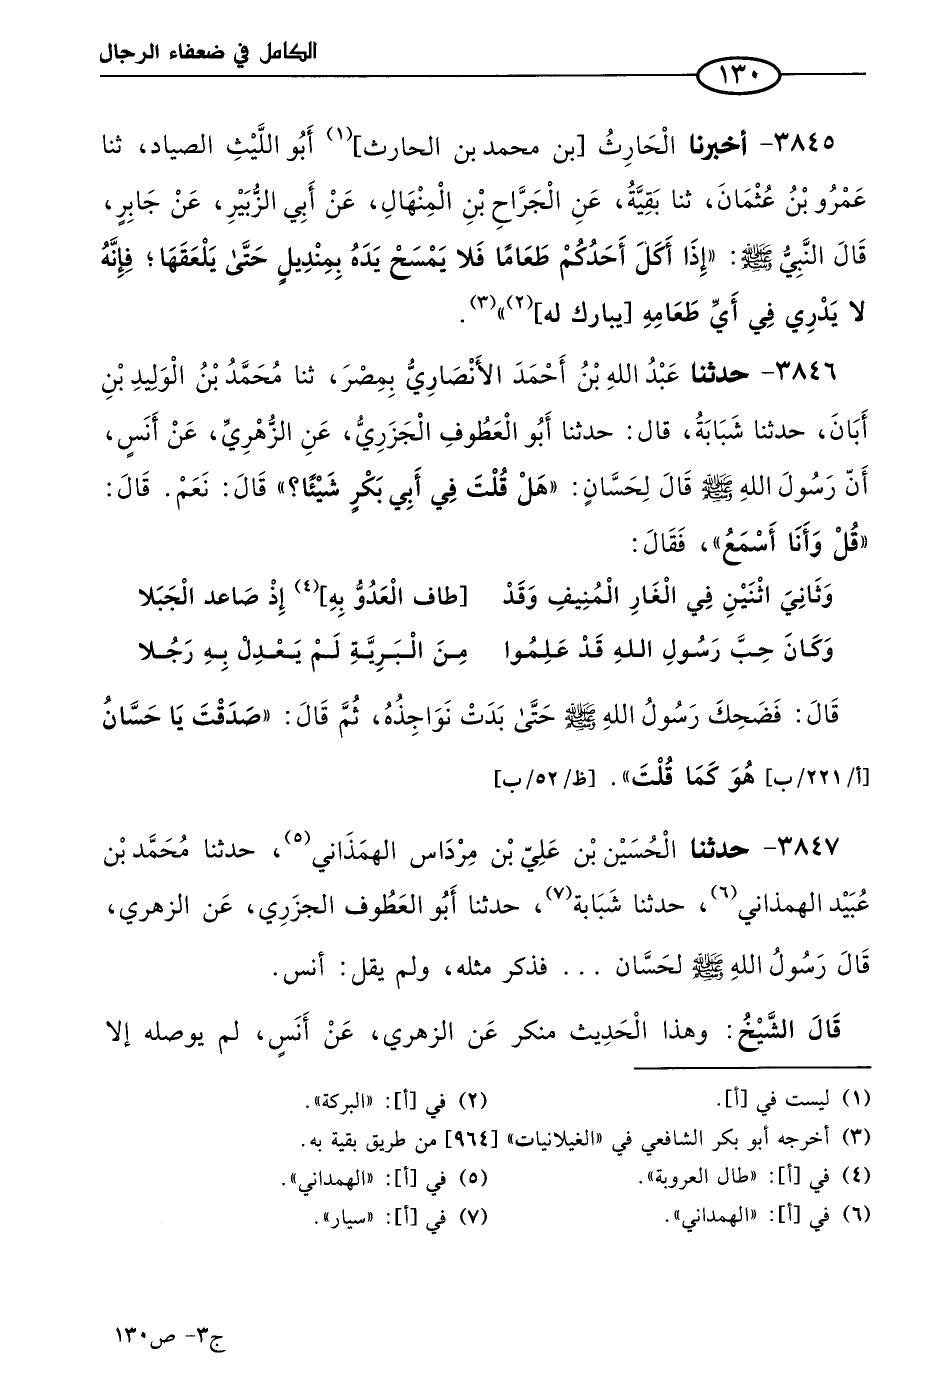 الكامل في ضعفاء الرجال
١٣٠
٣٨٤٥- أخبرنا الْحَارِثُ [بن محمد بن الحارث](١) أَبُو اللَّيْثِ الصياد، ثنا
عَمْرُو بْنُ عُثْمَانَ، ثنا بَقِيَّةُ، عَنِ الْجَرَّاحِ بْنِ الْمِنْهَالِ، عَنْ أَبِي الزُّبَيْرِ، عَنْ جَابِرٍ،
قَالَ النَّبِيُّ ﷺ: «إِذَا أَكَلَ أَحَدُكُمْ طَعَامًا فَلا يَمْسَحْ يَدَهُ بِمِنْدِيلٍ حَتَّىٰ يَلْعَقَهَا؛ فِإِنَّهُ
لا يَدْرِي فِي أَيِّ طَعَامِهِ [يبارك له](٢)»(٣).
٣٨٤٦- حدثنا عَبْدُ اللهِ بْنُ أَحْمَدَ الأَنْصَارِيُّ بِمِصْرَ، ثنا مُحَمَّدُ بْنُ الْوَلِيدِ بْنِ
أَبَانَ، حدثنا شَبَابَةُ، قال: حدثنا أَبُو الْعَطُوفِ الْجَزَرِيُّ، عَنِ الزُّهْرِيِّ، عَنْ أَنَسٍ،
أَنّ رَسُولَ اللهِ ﷺ قَالَ لِحَسَّانٍ: «هَلْ قُلْتَ فِي أَبِي بَكْرٍ شَيْئًا؟» قَالَ: نَعَمْ. قَالَ:
«قُلْ وَأَنَا أَسْمَعُ»، فَقَالَ:
وَثَانِيَ اثْنَيْنِ فِي الْغَارِ الْمُنِيفِ وَقَدْ [طاف الْعَدُوُّ بِهِ](٤) إِذْ صَاعد الْجَبَلا
وَكَانَ حِبَّ رَسُولِ اللهِ قَدْ عَلِمُوا مِنَ الْبَرِيَّةِ لَمْ يَعْدِلْ بِهِ رَجُلا
قَالَ: فَضَحِكَ رَسُولُ اللهِ ﷺ حَتَّىٰ بَدَتْ نَوَاجِذُهُ، ثُمَّ قَالَ: «صَدَقْتَ يَا حَسَّانُ
[أ/٢٢١/ب] هُوَ كَمَا قُلْتَ». [ظ/٥٢/ب]
٣٨٤٧- حدثنا الْحُسَيْن بْن عَلِيّ بْن مِرْدَاس الهمَذَاني(٥)، حدثنا مُحَمَّد بْن
عُبَيْد الهمذاني(٦)، حدثنا شَبَابة(٧)، حدثنا أَبُو العَطُوف الجزَرِي، عَن الزهري،
قَالَ رَسُولُ اللهِ ﷺ لحَسَّان ... فذكر مثله، ولم يقل: أنس.
قَالَ الشَّيْخُ: وهذا الْحَدِيث منكر عَن الزهري، عَنْ أَنَسٍ، لم يوصله إلا
(١) ليست في [أ]. (٢) في [أ]: «البركة».
(٣) أخرجه أبو بكر الشافعي في «الغيلانيات» [٩٦٤] من طريق بقية به.
(٤) في [أ]: «طال العروبة». (٥) في [أ]: «الهمداني».
(٦) في [أ]: «الهمداني». (٧) في [أ]: «سيار».
ج٣- ص١٣٠